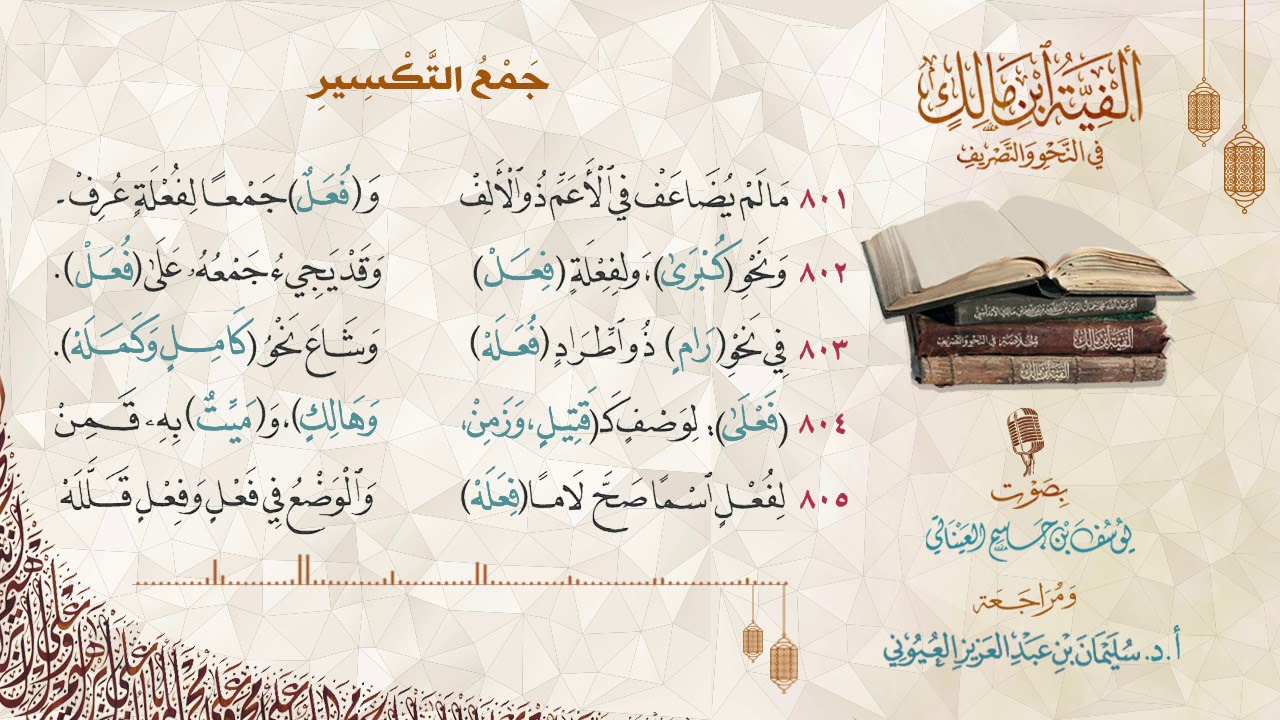 جَمْعُ التَّكْسِيرِ
أَلْفِيَّةُ ٱبْنِ مَالِكٍ
فِي النَّحْوِ وَالتَّصْرِيفِ
٨٠١ مَا لَمْ يُضَاعَفْ فِي ٱلْأَعَمِّ ذُو ٱلْأَلِفْ وَ(فُعَلٌ) جَمْعًا لِفُعْلَةٍ عُرِفْ -
٨٠٢ وَنَحْوِ (كُبْرَىٰ)، وَلِفِعْلَةٍ (فِعَلْ) وَقَدْ يَجِيءُ جَمْعُهُۥ عَلَىٰ (فُعَلْ).
٨٠٣ فِي نَحْوِ (رَامٍ) ذُو ٱطِّرَادٍ (فُعَلَهْ) وَشَاعَ نَحْوُ (كَامِلٍ وَكَمَلَهْ).
٨٠٤ (فَعْلَىٰ): لِوَصْفٍ كَـ(قَتِيلٍ، وَزَمِنْ، وَهَالِكٍ)، وَ(مَيِّتٌ) بِهِۦ قَمِنْ
٨٠٥ لِفُعْلٍ ٱسْمًا صَحَّ لَامًا (فِعَلَهْ) وَٱلْوَضْعُ فِي فَعْلٍ وَفِعْلٍ قَلَّلَهْ
أَلْفِيَّةُ ابْنِ مَالِكٍ
أَلْفِيَّةُ ابْنِ مَالِكٍ
بِصَوْت
يُوسُفَ بْنِ جَاسِمٍ العَيْنَاتِي
وَمُرَاجَعَة
أ.د. سُلَيْمَانَ بْنِ عَبْدِ العَزِيزِ العُيُونِي